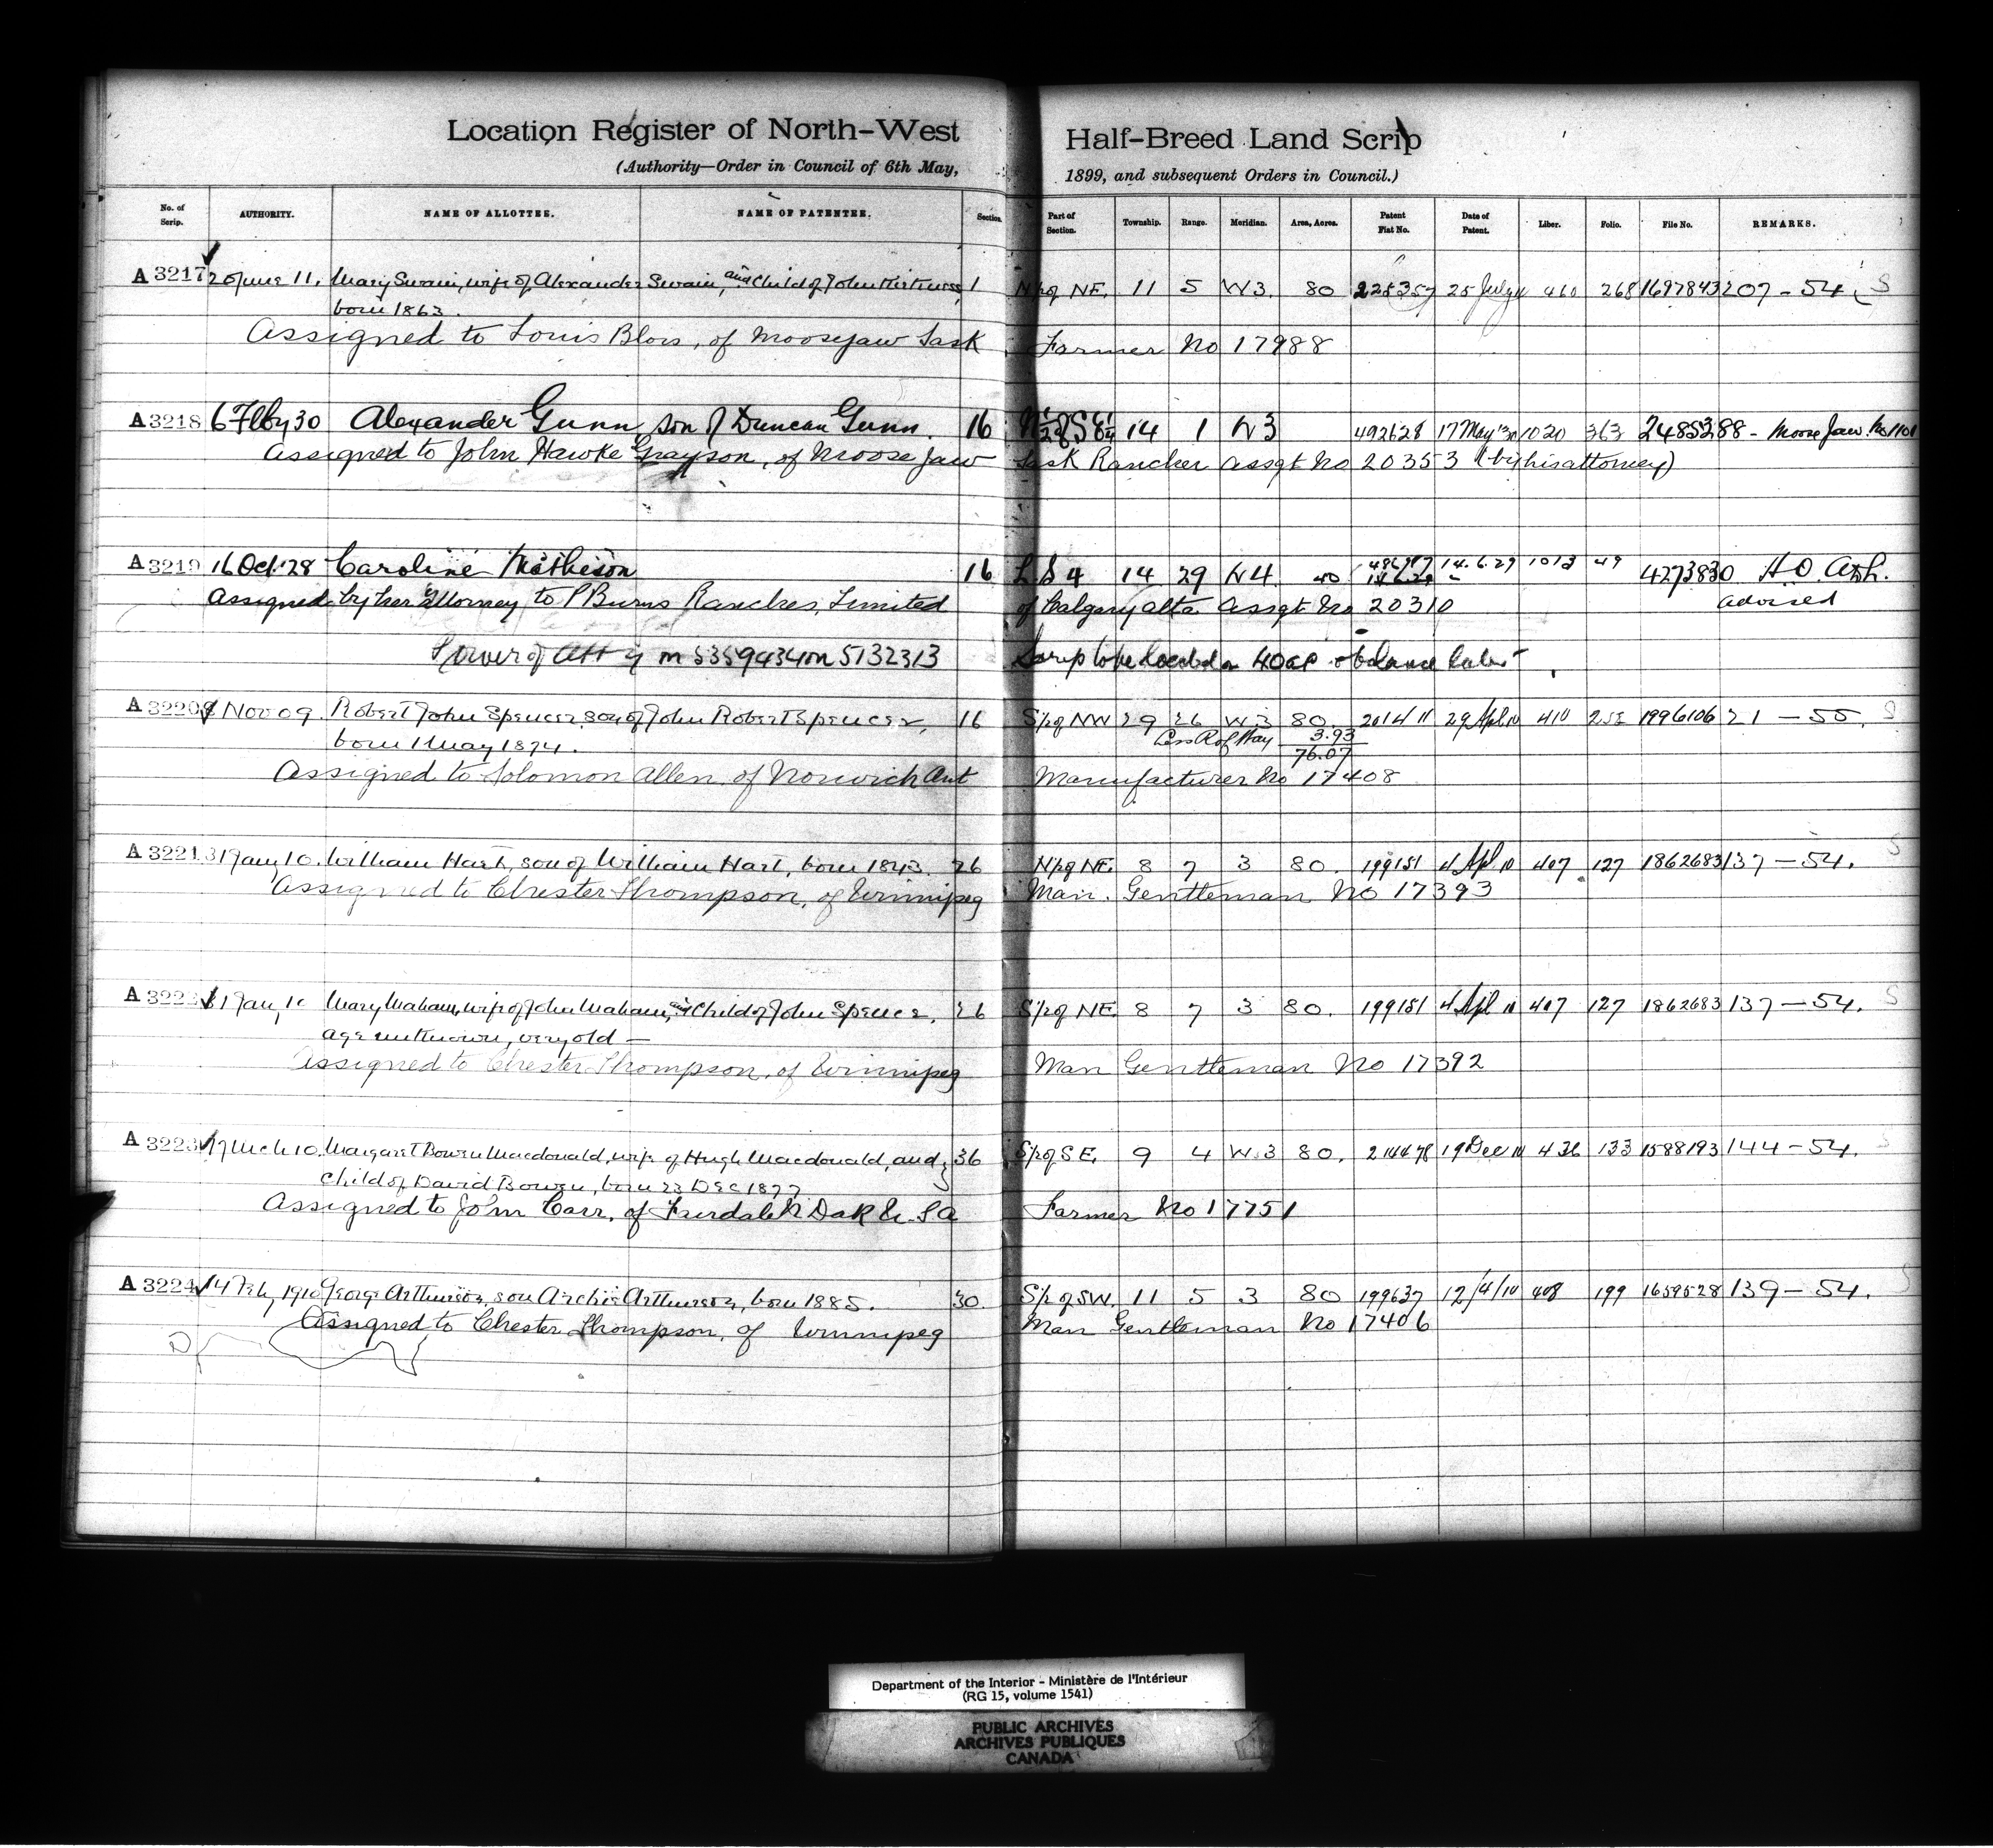 Location Register of North-West Half-Breed Land Scrip
(Authority—Order in Council of 6th May, 1899, and subsequent Orders in Council.)
No. of Scrip. AUTHORITY. NAME OF ALLOTTEE. NAME OF PATENTEE. Section. Part of Section. Township. Range. Meridian. Area, Acres. Patent Fiat No. Date of Patent. Liber. Folio. File No. REMARKS.
A 3217 20 June 11. Mary Swain, wife of Alexander Swain, and child of John Kirkness, 1 N½ of NE. 11 5 W3. 80 225357 25 July 11 460 268 1697843 207 - 54. S
born 1863.
Assigned to Louis Blois, of Moosejaw Sask Farmer No 17988
A 3218 6 Feby 30 Alexander Gunn son of Duncan Gunn. 16 N½ of SE¼ 14 1 W3 492628 17 May '30 1020 363 2485288 - Moose Jaw. No 1101
Assigned to John Hawke Grayson, of Moose Jaw Sask Rancher Assgt No 20353 (by his attorney)
A 3219 16 Oct. 28 Caroline Matheson 16 L S 4 14 29 W4 40 14.6.29 1013 49 4273830 H.O.
Assigned by her attorney to P Burns Ranches, Limited of Calgary Alta Assgt No 20310 advised
Power of Atty in 5359434 on 5132313 Scrip to be located on 40 ac balance
A 3220 Nov 09. Robert John Spencer, son of John Robert Spencer, 16 S½ of NW 29 26 W.3 80. 201411 29 Apl 10 410 1996106 21 — 55. S
born 1 May 1874. Less R of Way 3.93
76.07
Assigned to Solomon Allen of Norwich Ont Manufacturer No 17408
A 3221 31 Jany 10. William Hart, son of William Hart, born 1843. 26 N½ of NE. 8 7 3 80. 199151 4 Apl 10 407 127 1862683 137 — 54. S
Assigned to Chester Thompson, of Winnipeg Man. Gentleman No 17393
A 3222 31 Jany 10 Mary Maham, wife of John Maham, and child of John Spence, 26 S½ of NE. 8 7 3 80. 199151 4 Apl 10 407 127 1862683 137 — 54. S
age unknown, very old —
Assigned to Chester Thompson, of Winnipeg Man Gentleman No 17392
A 3223 17 Mch 10. Margaret Bowen Macdonald, wife of Hugh Macdonald, and 36 S½ of SE. 9 4 W.3 80. 214478 19 Dec 10 436 133 1588193 144 — 54. S
child of David Bowen, born 23 Dec 1877
Assigned to John Carr, of Fairdale N Dak U.S.A Farmer No 17751
A 3224 14 Feb, 1910 George Arthurson, son Archie Arthurson, born 1885. 30. S½ of SW. 11 5 3 80 199637 12/4/10 408 199 1659528 139 — 54. S
Assigned to Chester Thompson, of Winnipeg Man Gentleman No 17406
Department of the Interior - Ministère de l'Intérieur
(RG 15, volume 1541)
PUBLIC ARCHIVES
ARCHIVES PUBLIQUES
CANADA